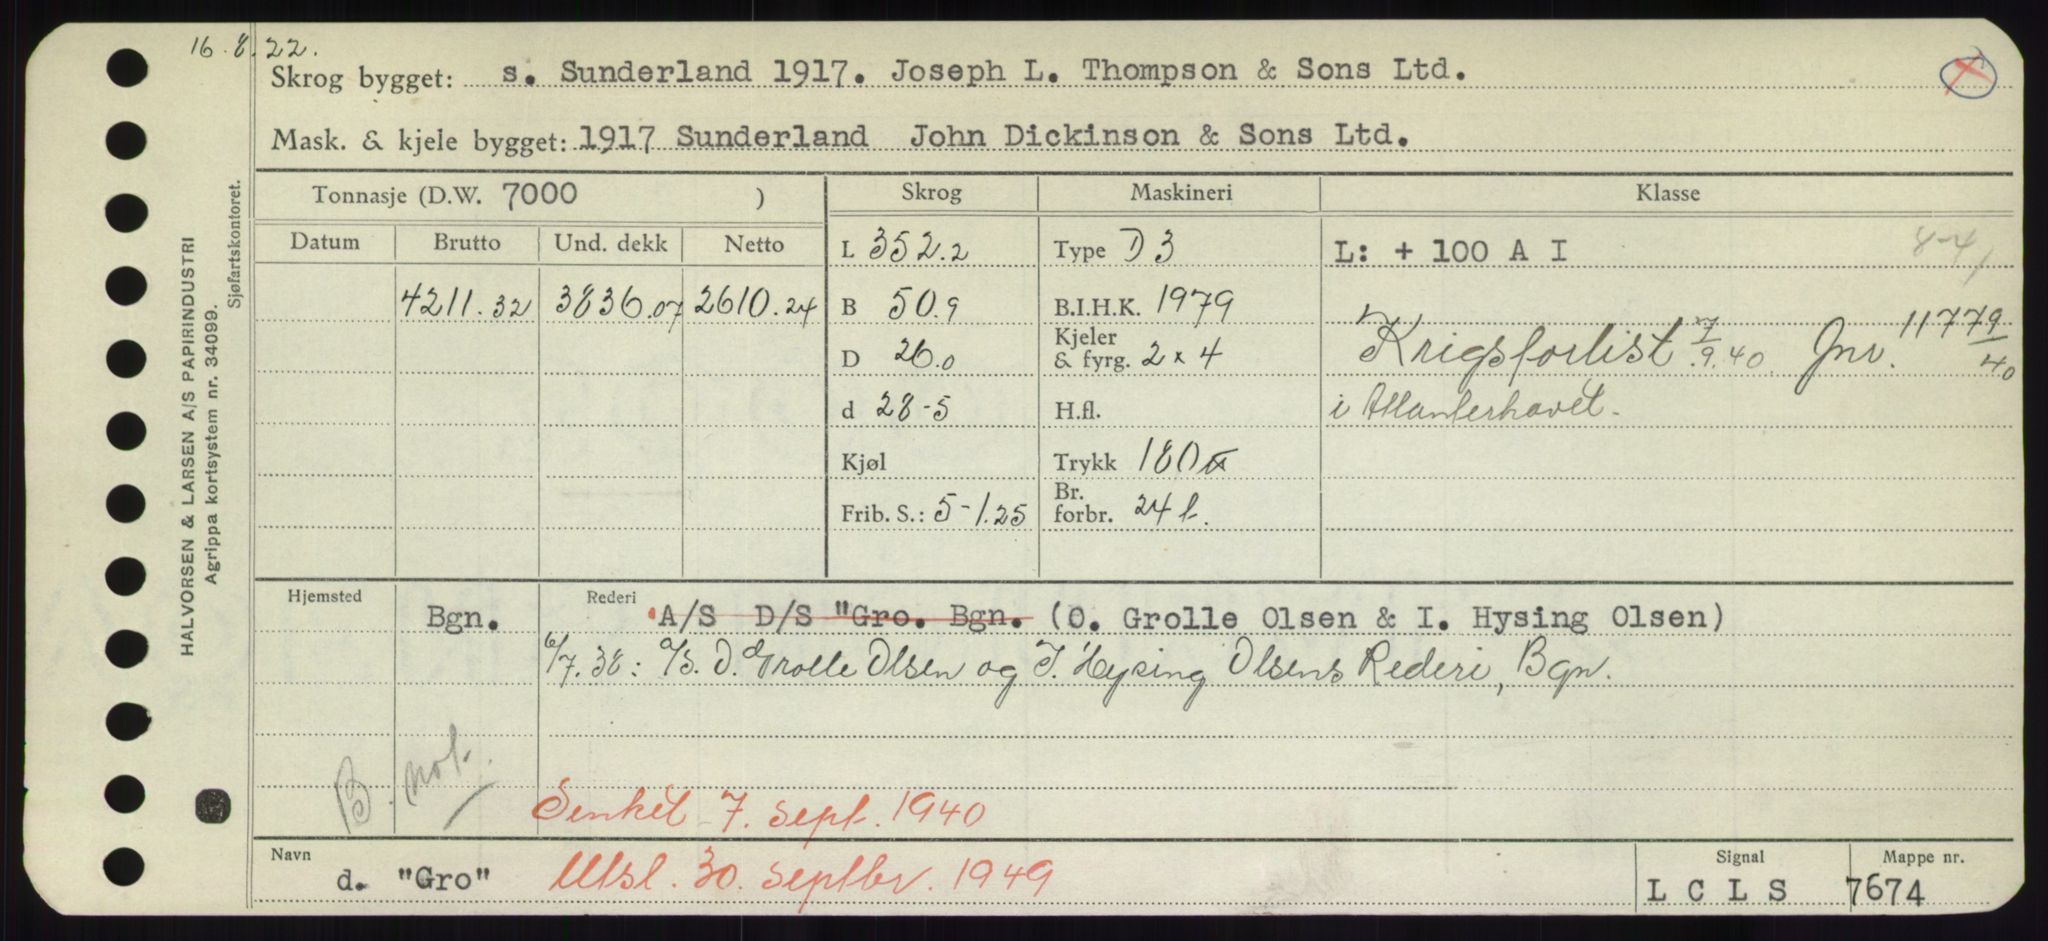 16.8.22.
Skrog bygget: s. Sunderland 1917. Joseph L. Thompson & Sons Ltd.
Mask. & kjele bygget: 1917 Sunderland John Dickinson & Sons Ltd.
HALVORSEN & LARSEN A/S PAPIRINDUSTRI
Agrippa kortsystem nr. 34099.
Sjøfartskontoret.
Tonnasje (D.W. 7000 ) Skrog Maskineri Klasse
Datum Brutto Und. dekk Netto
L 352.2 Type D 3 L: + 100 A I 8-41
4211.32 3836.07 2610.24 B 50.9 B.I.H.K. 1979
D 26.0 Kjeler & fyrg. 2 x 4 Krigsforlist 7/9.40. Jnr. 11779/40
d 28-5 H.fl. i Atlanterhavet.
Kjøl Trykk 180
Frib. S.: 5-1.25 Br. forbr. 24 t.
Hjemsted Bgn. Rederi A/S D/S "Gro. Bgn. (O. Grolle Olsen & I. Hysing Olsen)
6/7.38: A/S. O. Grolle Olsen og I. Hysing Olsens Rederi, Bgn.
B. not.
Senket 7. sept. 1940
Navn d. "Gro" Utsl. 30. septbr. 1949
Signal L C L S
Mappe nr. 7674